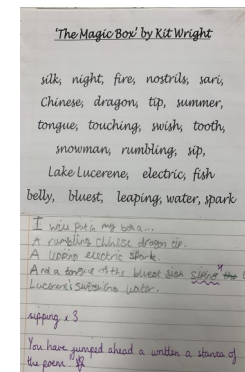 'The Magic Box' by Kit Wright
silk, night, fire, nostrils, sari,
Chinese, dragon, tip, summer,
tongue, touching, swish, tooth,
snowman, rumbling, sip,
Lake Lucerene, electric, fish
belly, bluest, leaping, water, spark
I will put in my box...
A rumbling chinese dragon tip.
A electric spark.
And a tongue of the bluest fish
Lucerene's water.
sipping x 3
You have jumped ahead a written a stanza of
the poem.